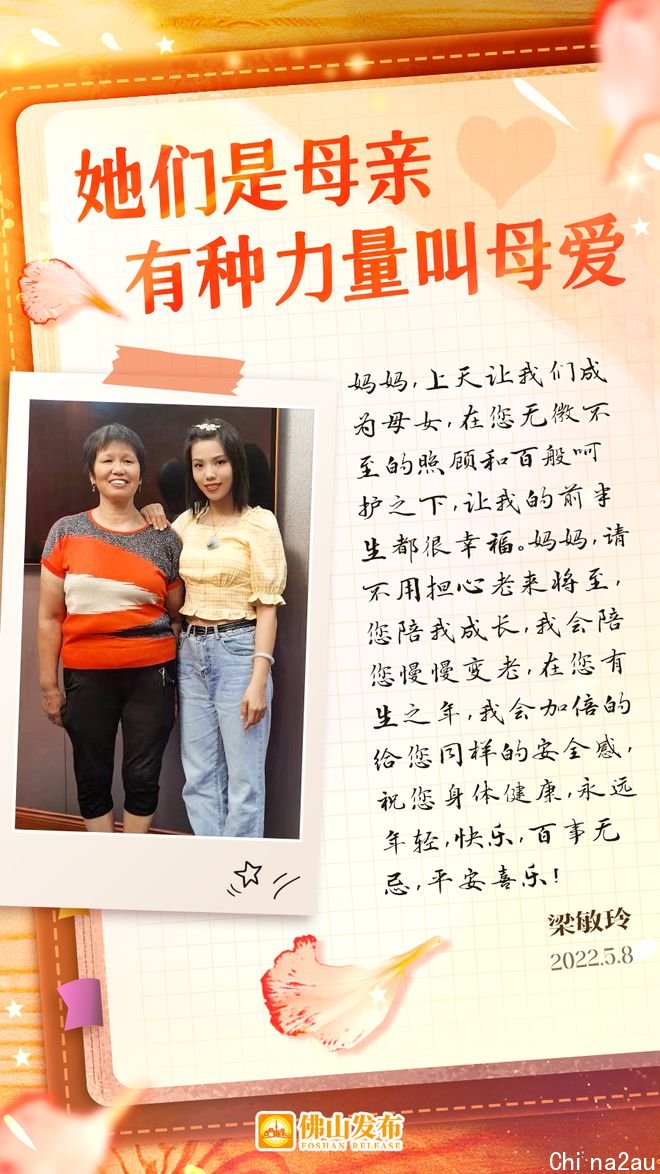 她们是母亲
有种力量叫母爱
妈妈,上天让我们成
为母女,在您无微不
至的照顾和百般呵
护之下,让我的前半
生都很幸福。妈妈,请
不用担心老来将至,
您陪我成长,我会陪
您慢慢变老,在您有
生之年,我会加倍的
给您同样的安全感,
祝您身体健康,永远
年轻,快乐,百事无
忌,平安喜乐!
梁敏玲
2022.5.8
佛山发布
FOSHAN RELEASE
Chi na2au